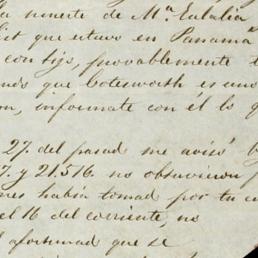 la muerte de Ma. Eulalia
que estuvo en Panamá
con hijo, provablemente
que Botesworth es uno
informate con el lo q
27. del pasad me avisó
7. y 21.516. no obstuvieron
había tomad por tu
el 16 del corriente, no
afortunad que se